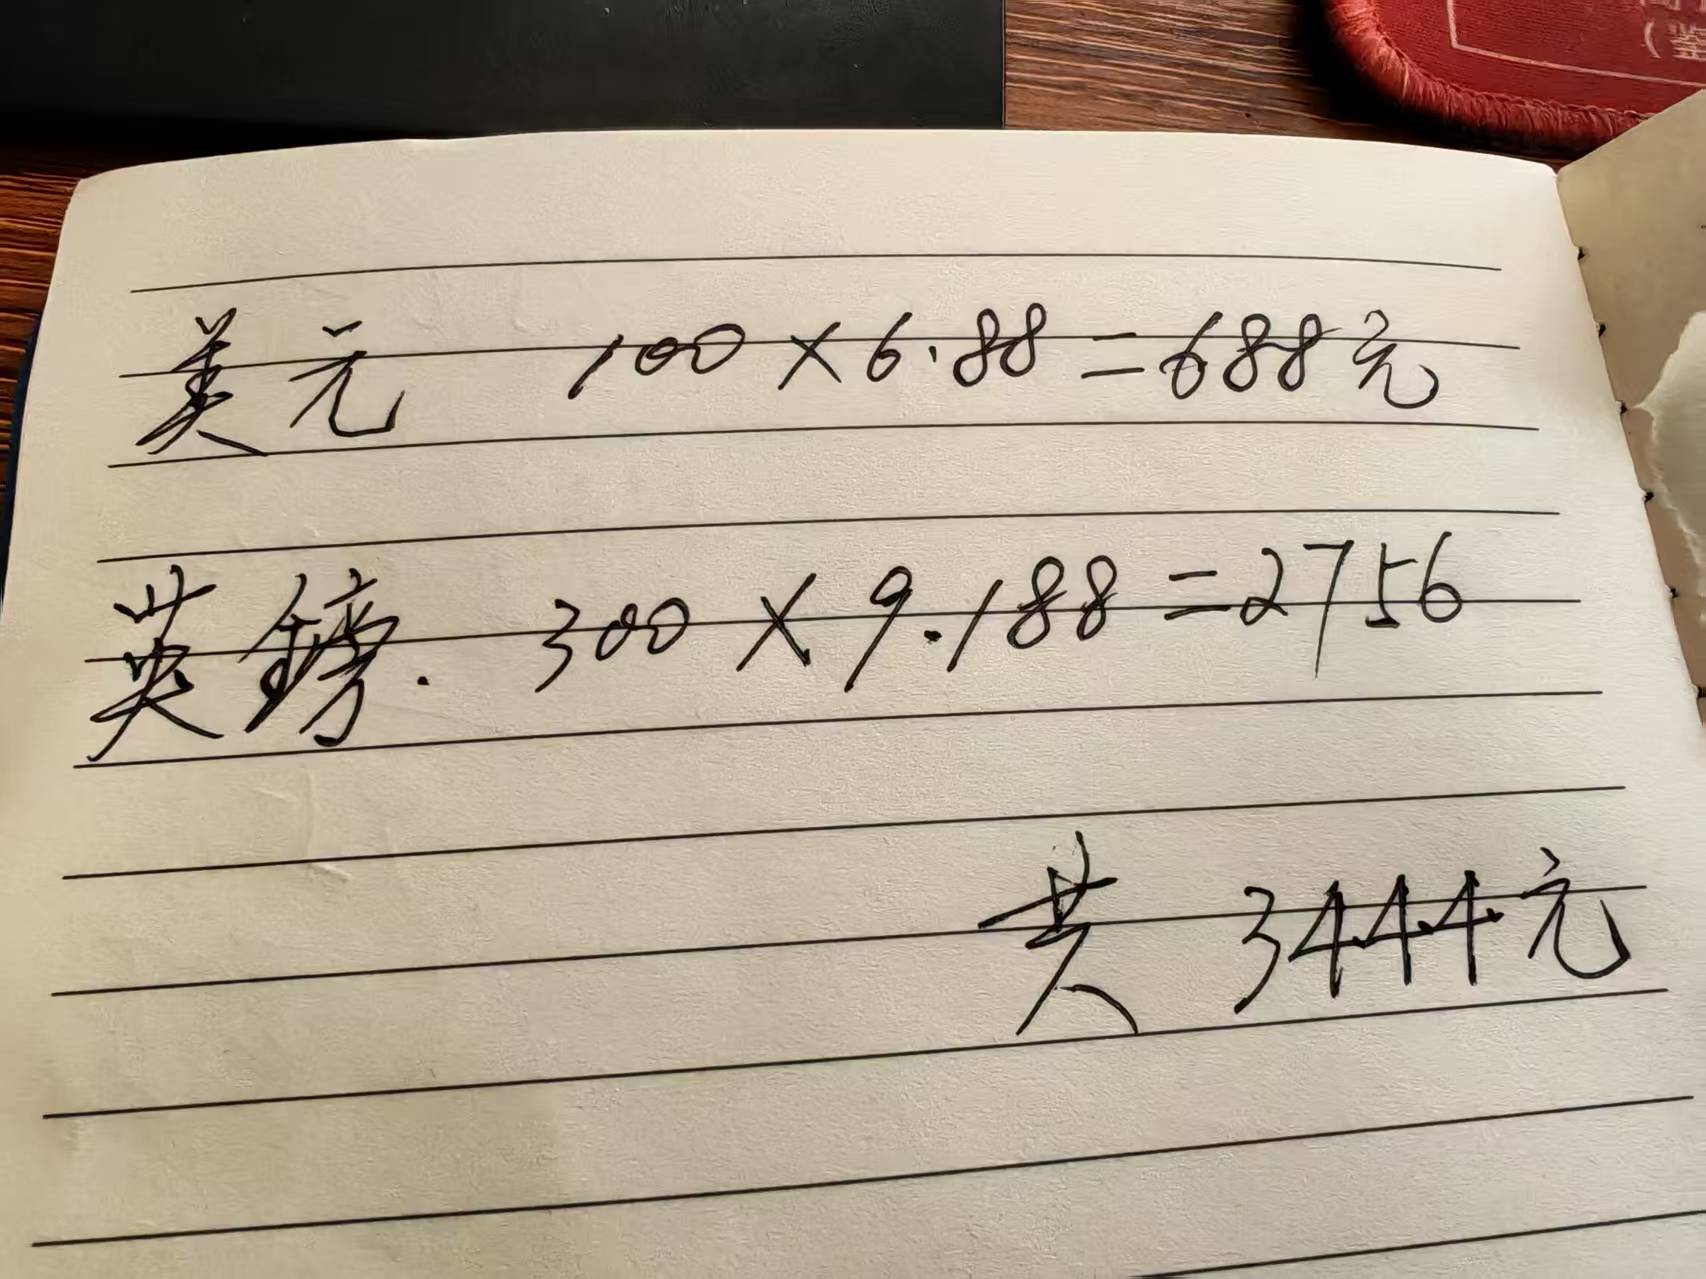 美元 100×6.88=688元
英鎊. 300×9.188=2756
共 3444元